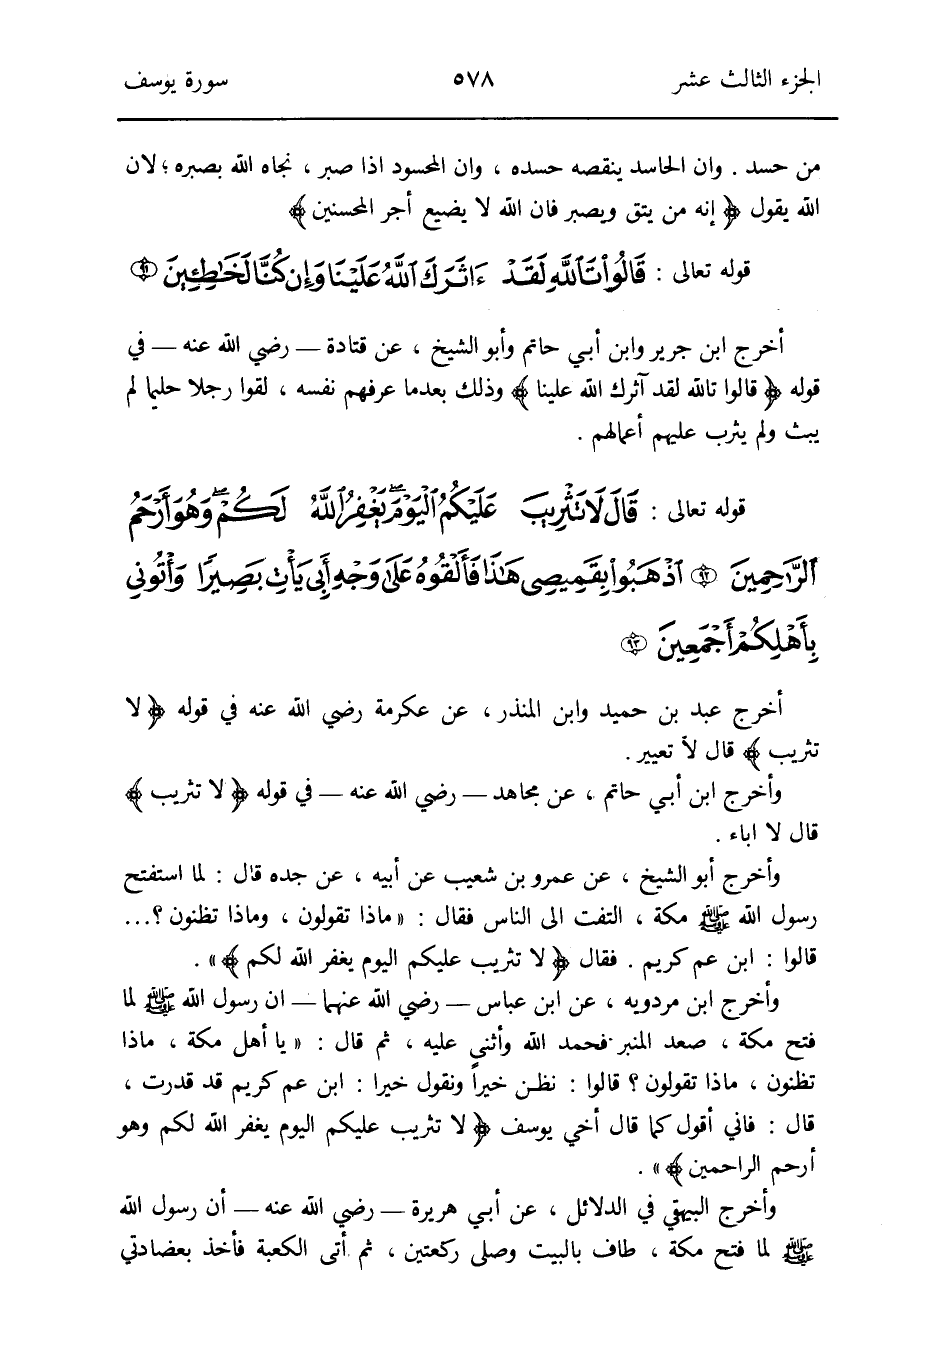 الجزء الثالث عشر ٥٧٨ سورة يوسف
من حسد . وان الحاسد ينقصه حسده ، وان المحسود اذا صبر ، نجاه الله بصبره ؛ لان
الله يقول ﴿ إنه من يتق ويصبر فان الله لا يضيع أجر المحسنين ﴾
قوله تعالى : قَالُوا۟ تَٱللَّهِ لَقَدْ ءَاثَرَكَ ٱللَّهُ عَلَيْنَا وَإِن كُنَّا لَخَٰطِـِٔينَ ۝٩١
أخرج ابن جرير وابن أبـي حاتم وأبو الشيخ ، عن قتادة – رضي الله عنه – في
قوله ﴿ قالوا تالله لقد آثرك الله علينا ﴾ وذلك بعدما عرفهم نفسه ، لقوا رجلا حليما لم
يبث ولم يثرب عليهم أعمالهم .
قوله تعالى : قَالَ لَا تَثْرِيبَ عَلَيْكُمُ ٱلْيَوْمَ ۖ يَغْفِرُ ٱللَّهُ لَكُمْ ۖ وَهُوَ أَرْحَمُ
ٱلرَّٰحِمِينَ ۝٩٢ ٱذْهَبُوا۟ بِقَمِيصِى هَٰذَا فَأَلْقُوهُ عَلَىٰ وَجْهِ أَبِى يَأْتِ بَصِيرًا وَأْتُونِى
بِأَهْلِكُمْ أَجْمَعِينَ ۝٩٣
أخرج عبد بن حميد وابن المنذر ، عن عكرمة رضي الله عنه في قوله ﴿ لا
تثريب ﴾ قال لا تعيير .
وأخرج ابن أبـي حاتم ، عن مجاهد – رضي الله عنه – في قوله ﴿ لا تثريب ﴾
قال لا اباء .
وأخرج أبو الشيخ ، عن عمرو بن شعيب عن أبيه ، عن جده قال : لما استفتح
رسول الله ﷺ مكة ، التفت الى الناس فقال : « ماذا تقولون ، وماذا تظنون ؟...
قالوا : ابن عم كريم . فقال ﴿ لا تثريب عليكم اليوم يغفر الله لكم ﴾ » .
وأخرج ابن مردويه ، عن ابن عباس – رضي الله عنهما – ان رسول الله ﷺ لما
فتح مكة ، صعد المنبر فحمد الله وأثنى عليه ، ثم قال : « يا أهل مكة ، ماذا
تظنون ، ماذا تقولون ؟ قالوا : نظن خيراً ونقول خيرا : ابن عم كريم قد قدرت ،
قال : فاني أقول كما قال أخي يوسف ﴿ لا تثريب عليكم اليوم يغفر الله لكم وهو
أرحم الراحمين ﴾ » .
وأخرج البيهقي في الدلائل ، عن أبـي هريرة – رضي الله عنه – أن رسول الله
ﷺ لما فتح مكة ، طاف بالبيت وصلى ركعتين ، ثم أتى الكعبة فأخذ بعضادتي